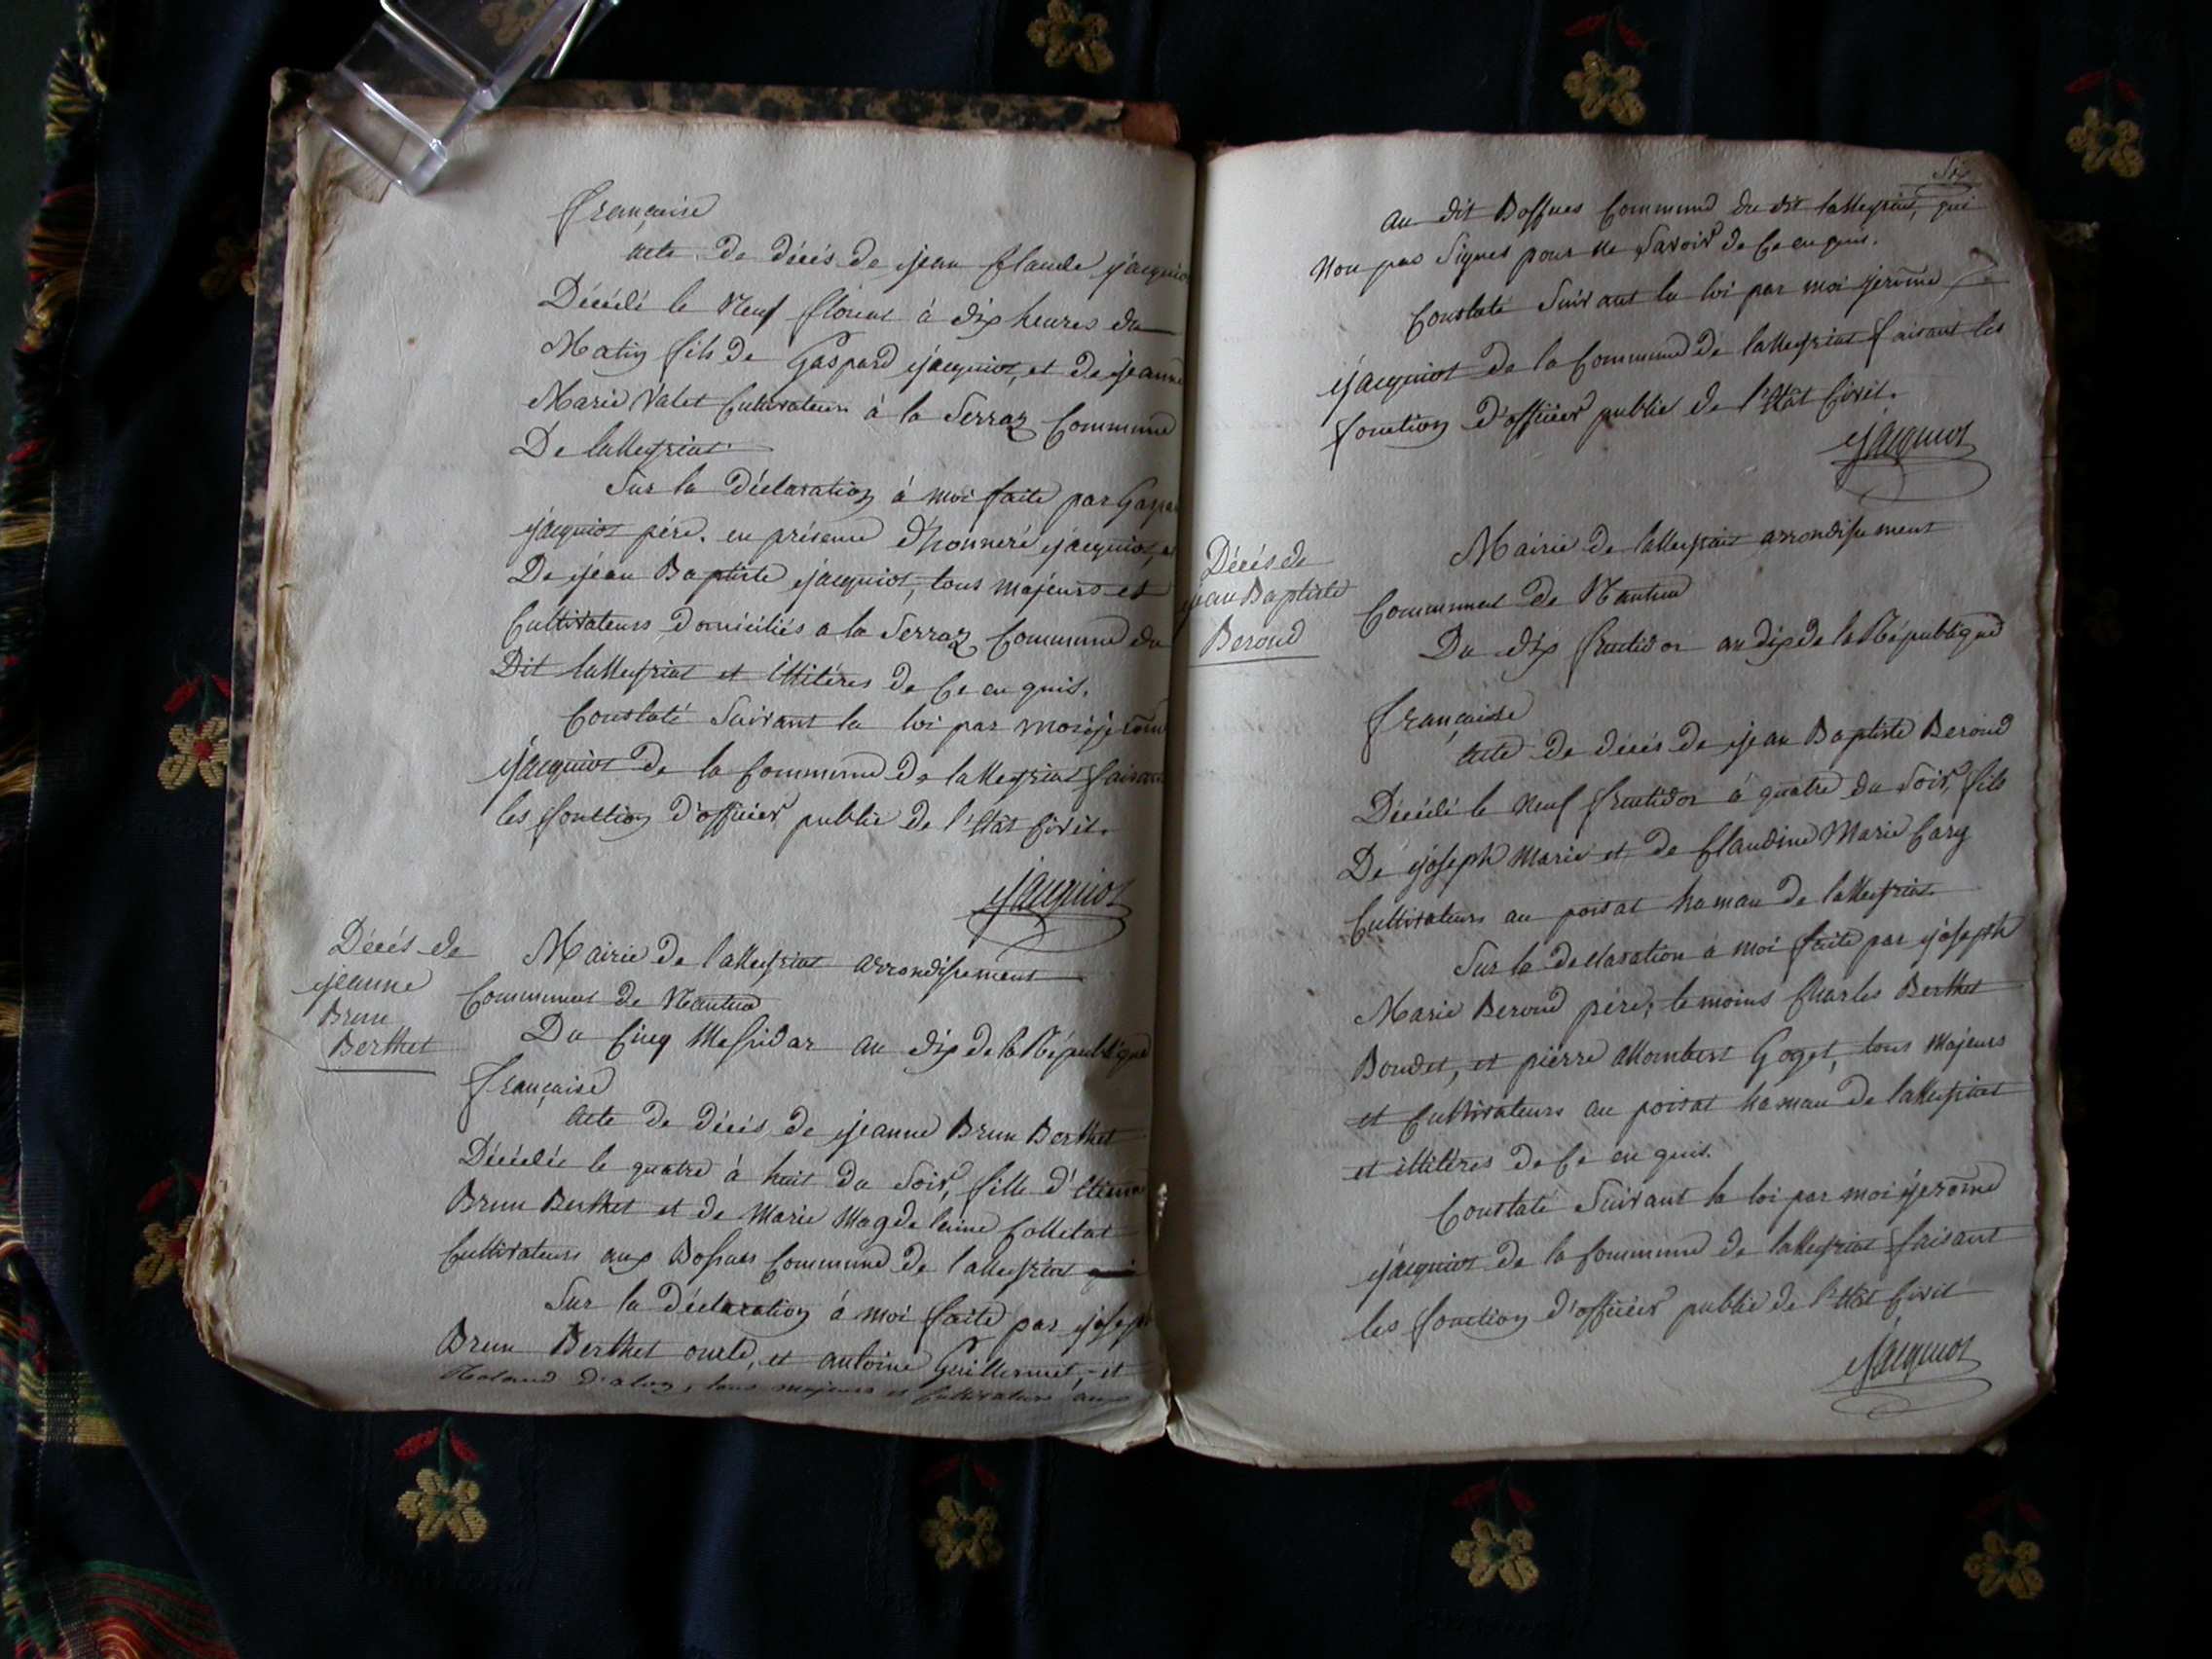 française
acte de décès de jean Claude jacquiot
Décédé le Neuf floréal à dix heures du
Matin fils de Gaspard jacquiot, et de jeanne
Marie Valet Cultivateurs à la Serraz Commune
De lalleyriat.
Sur la Déclaration à moi faite par Gaspa
jacquiot père. en présence d'honneré jacquiot, et
De jean Baptiste jacquiot, tous majeurs et
Cultivateurs domiciliés a la Serraz Commune du
Dit lalleyriat et illitéres de Ce en quis.
Constaté Suivant la loi par moi jerome
jacquiot de la Commune de lalleyriat faisant
les fonction d'officier public de l'état Civil.
jacquiot
Décès de
jeanne
Brun
Berthet
Mairie de lalleyriat arrondissement
Communal de Nantua
Du Cinq Messidor an dix de la République
française
acte de décès de jeanne Brun Berthet
Décédée le quatre à huit du Soir, fille d'Etienne
Brun Berthet et de Marie Magdelaine Colletat
Cultivateurs aux Bossues Commune de lalleyriat
Sur la Déclaration à moi faite par joseph
Brun Berthet oncle, et antoine Guillermet, et
Roland tous majeurs et Cultivateurs aux
Six
au dit Bossues Commune du dit lalleyriat, qui
Non pas Signés pour ne Savoir de Ce en quis.
Constaté Suivant la loi par moi jerome
jacquiot de la Commune de lalleyriat faisant les
fonction d'officier public de l'état Civil.
jacquiot
Décès de
jean Baptiste
Beroud
Mairie de lalleyriat arrondissement
Communal de Nantua
Du dix fructidor an dix de la République
française
acte de décès de jean Baptiste Beroud
Décédé le neuf fructidor à quatre du Soir, fils
De joseph Marie et de Claudine Marie Cary
Cultivateurs au poisat hamau de lalleyriat.
Sur la declaration à moi faite par joseph
Marie Beroud père, temoins Charles Berthet
Boudet, et pierre allombert Goget, tous Majeurs
et Cultivateurs au poisat hamau de lalleyriat
et illitéres de Ce en quis.
Constaté Suivant la loi par moi jerome
jacquiot de la Commune de lalleyriat faisant
les fonction d'officier public de l'état Civil
jacquiot